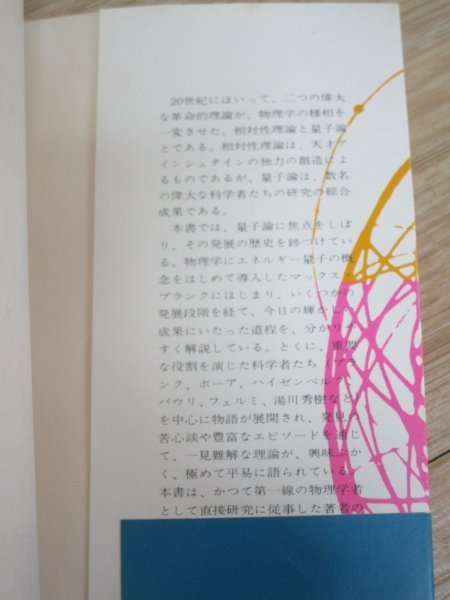 20世紀にはいって、二つの偉大
な革命的理論が、物理学の様相を
一変させた。相対性理論と量子論
とである。相対性理論は、天才ア
インシュタインの独力の創造によ
るものであるが、量子論は、数名
の偉大な科学者たちの研究の綜合
成果である。
本書では、量子論に焦点をしぼ
り、その発展の歴史を跡づけてい
る。物理学にエネルギー量子の概
念をはじめて導入したマックス・
プランクにはじまり、いくつかの
発展段階を経て、今日の輝かしい
成果にいたった道程を、分かりや
すく解説している。とくに、重要
な役割を演じた科学者たち（プラ
ンク、ボーア、ハイゼンベルク、
パウリ、フェルミ、湯川秀樹など）
を中心に物語が展開され、発見の
苦心談や豊富なエピソードを通じ
て、一見難解な理論が、興味ぶか
く、極めて平易に語られている。
本書は、かつて第一線の物理学者
として直接研究に従事した著者の